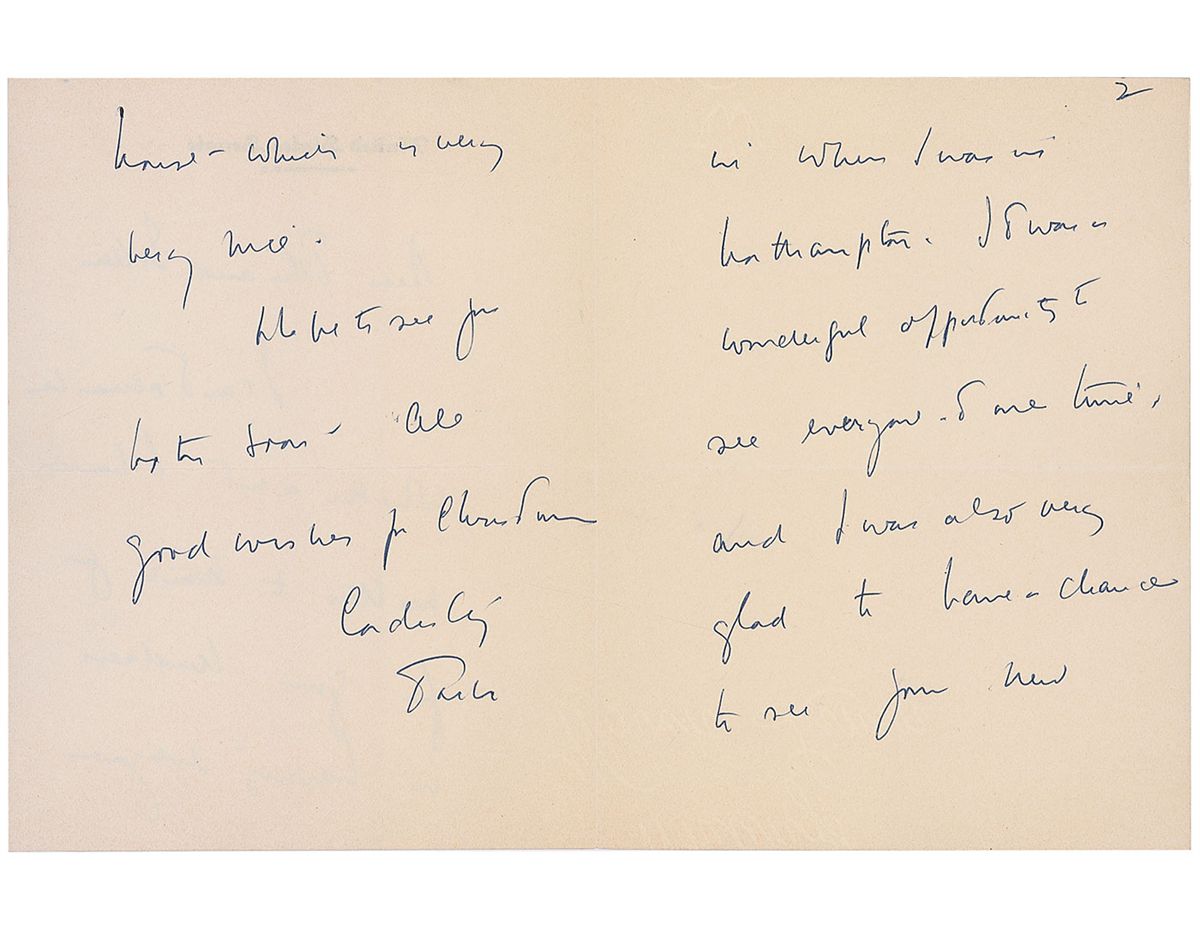 2
in when I was in
Northampton. It was a
wonderful opportunity to
see everyone at one time,
and I was also very
glad to have a chance
to see your new
house - which is very
very nice.
Hope to see you
both soon - All
good wishes for Christmas
Cordially
Jack